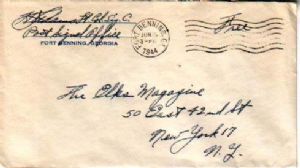 Post Signal Office
FORT BENNING, GEORGIA
FORT BENNING, GA.
JUN
1944
Free
The Elks Magazine
50 East 42nd St
New York 17
N. Y.